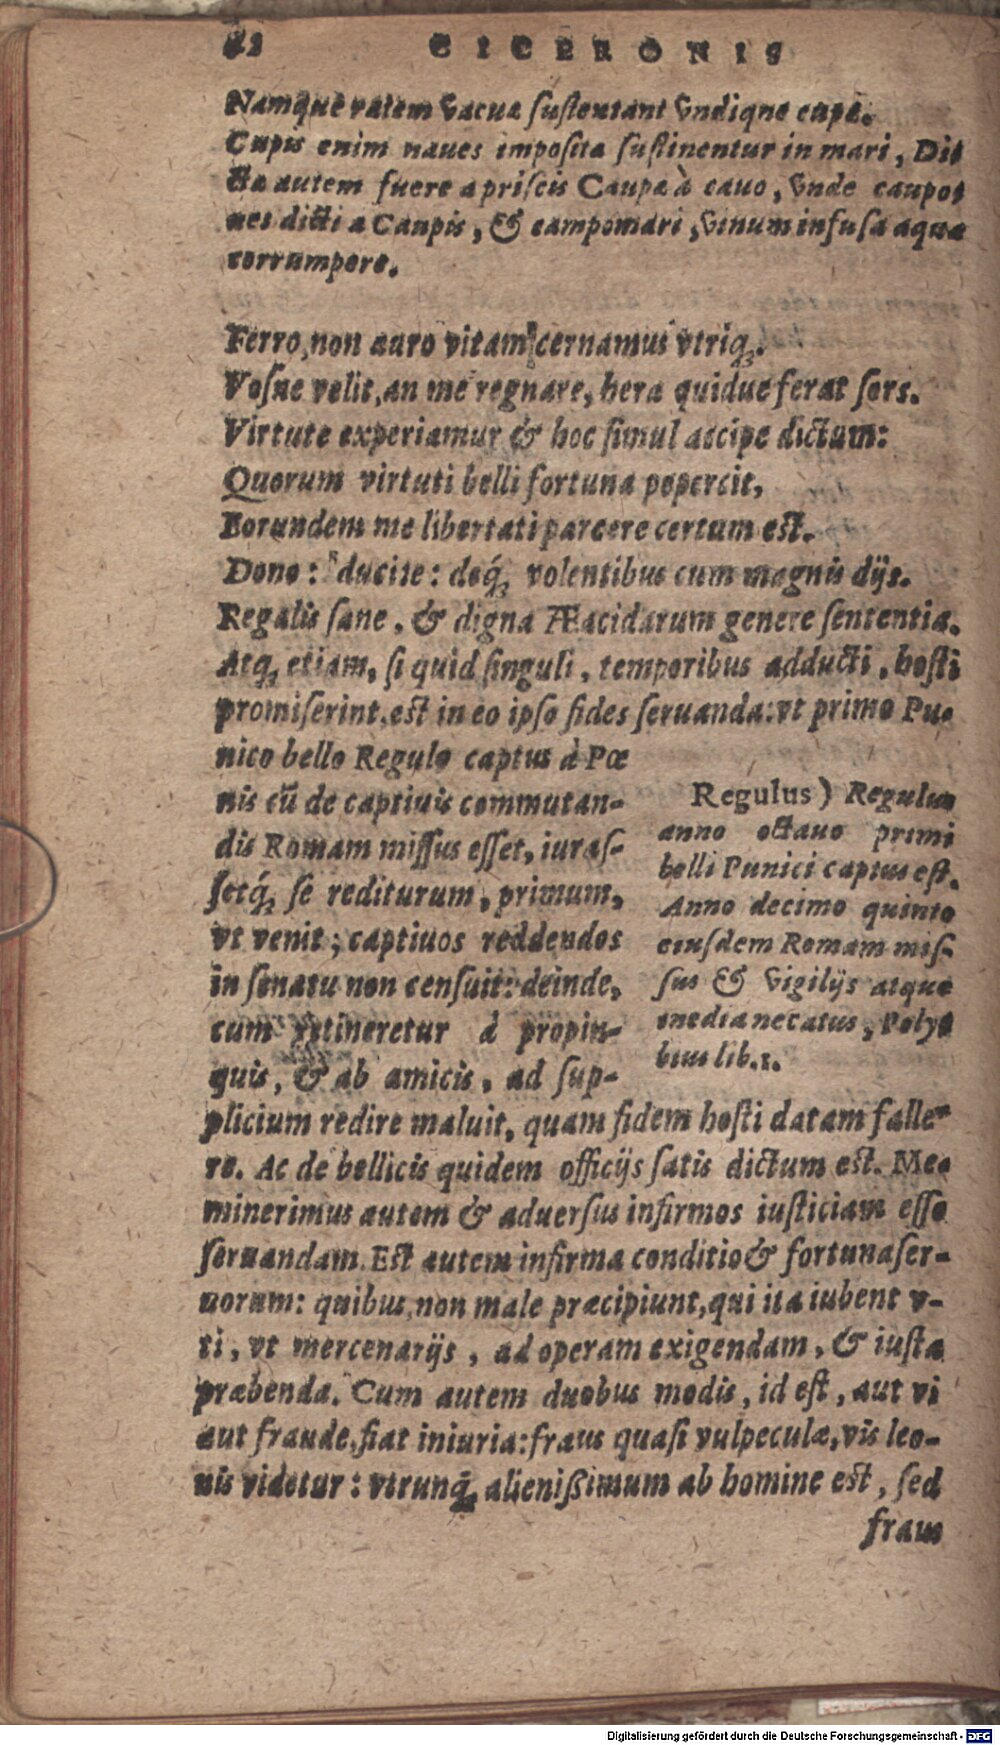 CICERONIS
Namque ratem vacuæ sustentant vndique cupæ.
Cupis enim naues imposita sustinentur in mari, Di¬
cta autem fuere a priscis Caupæ à cauo, vnde caupo¬
nes dicti a Caupis, & campomari, vinum infusa aqua
corrumpere.
Ferro, non auro vitam cernamus vtriq́;.
Vosne velit, an me regnare, hera quidue ferat sors.
Virtute experiamur & hoc simul accipe dictum:
Quorum virtuti belli fortuna pepercit,
Eorundem me libertati parcere certum est.
Dono: ducite: doq́; volentibus cum magnis dijs.
Regalis sane, & digna Æacidarum genere sententia.
Atq; etiam, si quid singuli, temporibus adducti, hosti
promiserint, est in eo ipso fides seruanda: vt primo Pu-
nico bello Regulo captus à Pœ
nis cũ de captiuis commutan-
dis Romam missus esset, iuras-
setq́; se rediturum, primum,
vt venit; captiuos reddendos
in senatu non censuit: deinde,
cum retineretur à propin-
quis, & ab amicis, ad sup-
Regulus) Regulus
anno octauo primi
belli Punici captus est.
Anno decimo quinto
eiusdem Romam mis-
sus & vigilijs atque
inedia necatus, Poly
bius lib.1.
plicium redire maluit, quam fidem hosti datam falle-
re. Ac de bellicis quidem officijs satis dictum est. Me-
minerimus autem & aduersus infirmos iusticiam esse
seruandam. Est autem infirma conditio & fortuna ser-
uorum: quibus, non male præcipiunt, qui ita iubent v-
ti, vt mercenarijs, ad operam exigendam, & iusta
præbenda. Cum autem duobus modis, id est, aut vi
aut fraude, fiat iniuria: fraus quasi vulpeculæ, vis leo-
nis videtur: vtrunq́; alienißimum ab homine est, sed
fraus
Digitalisierung gefördert durch die Deutsche Forschungsgemeinschaft - DFG